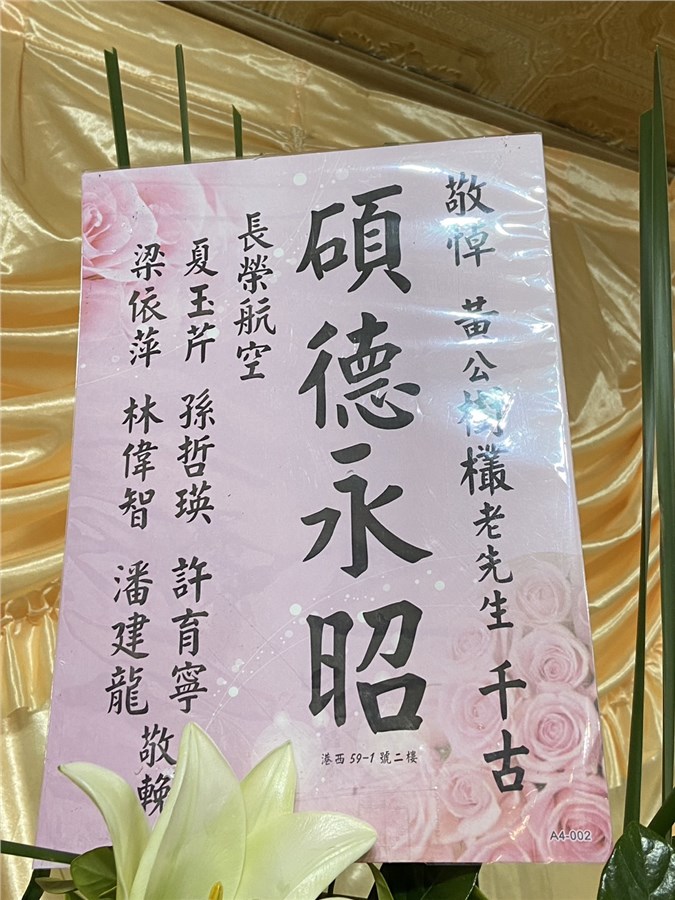 敬悼 黃公樹欉老先生 千古
碩德永昭
港西 59-1 號二樓
長榮航空
夏玉芹 孫哲瑛 許育寧
梁依萍 林偉智 潘建龍
敬輓
A4-002